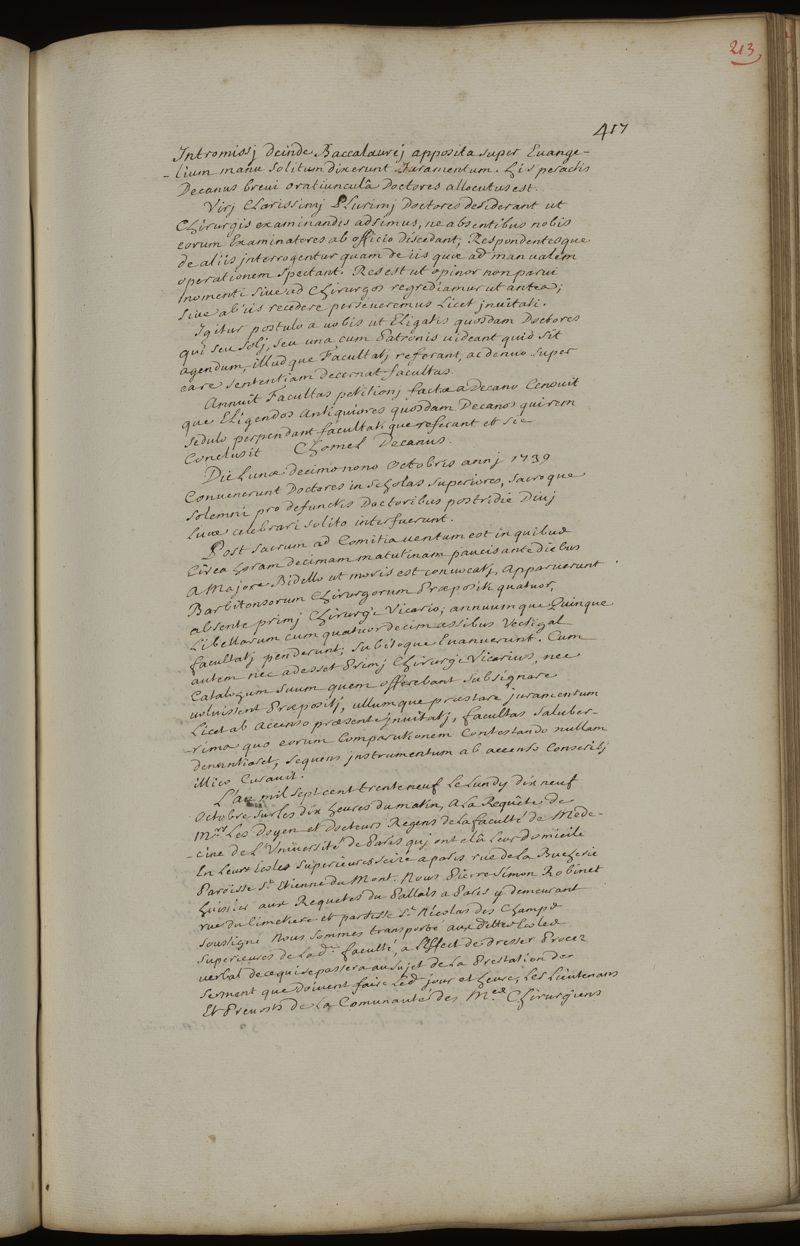 213
417
Intromissj deinde Baccalaurej apposita super Euange-
-lium manu solitum dixerunt Juramentum. His peractis
Decanus breui oratiunculâ Doctores allocutus est.
Virj Clarissimj Plurimj Doctores desiderant ut
Chirurgis examinandis adsimus, ne absentibus nobis
eorum Examinatores ab officio discedant, Respondentesque
de aliis jnterrogentur quam de iis quæ ad manualem
operationem spectant. Res est ut opinor non parui
momenti siue ad Chirurgos regrediamur ut antea;
siue ab iis recedere perseueremus Licet jnuitati.
Igitur postulo a uobis ut Eligatis quosdam Doctores
qui seu solj, seu una cum Patronis uideant quid sit
agendum, illudque Facultatj referant, ac denuo super
eare sententiam decernat facultas.
Annuit Facultas petitionj factæ a Decano Censuit
que Eligendos Antiquiores quosdam Decanos qui rem
sedulo perpendant facultati que referant et sic
Conclusit Chomel Decanus.
Die Lunæ decimo nono Octobris annj 1739
Conuenerunt Doctores in Scholas superiores, sacroque
solemni pro defunctis Doctoribus postridie Diuj
Lucæ celebrari solito interfuerunt.
Post sacrum ad Comitia uentum est in quibus
Circa horam decimam matutinam paucis ante diebus
A Majore Bidello ut moris est conuocatj, Apparuerunt
Barbitonsorum Chirurgorum Præpositi quatuor,
absente primj Chirurgi Vicario; annuumque Quinque
Libellarum cum quatuordecim assibus Vectigal
facultatj penderunt; subitoque Euanuerunt. Cum
autem nec adesset Primj Chirurgi Vicarius, nec
Catalogum suum quem offerebant subsignare
uoluissent Præpositj, ullumque præstare juramentum
Licet ab Accenso præsente jnuitatj, facultas saluber-
-rima quo eorum Comparitionem Contestando nullam
denuntiaret, sequens jnstrumentum ab accenso Conscribj
illico Curauit.
L'an mil sept cent trente neuf Le Lundy dix neuf
Octobre sur les dix heures du matin, A la Requête de
Mrs Les Doyen et Docteurs Regens de la faculté de Mede-
-cine de L'Vniuersité de Paris quj ont elû Leur domicile
En Leurs Ecoles superieures scize a paris rue de la Bucherie
Paroisse St. Etienne du Mont. Nous Pierre Simon Robinet
huissier aux Requetes du Pallais a Paris y demeurant
rue du Cimetiere et paroisse St. Nicolas des Champs
soussigné Nous sommes transporté aux dittes Ecoles
superieures de Lad.e faculté, a L'effect de dresser Procez
uerbal de ce qui se passera au sujet de La Prestation de
serment que doiuent faire Led. jour et heure, Les Lieutenans
Et Preuosts de La Communauté des Mes Chirurgiens